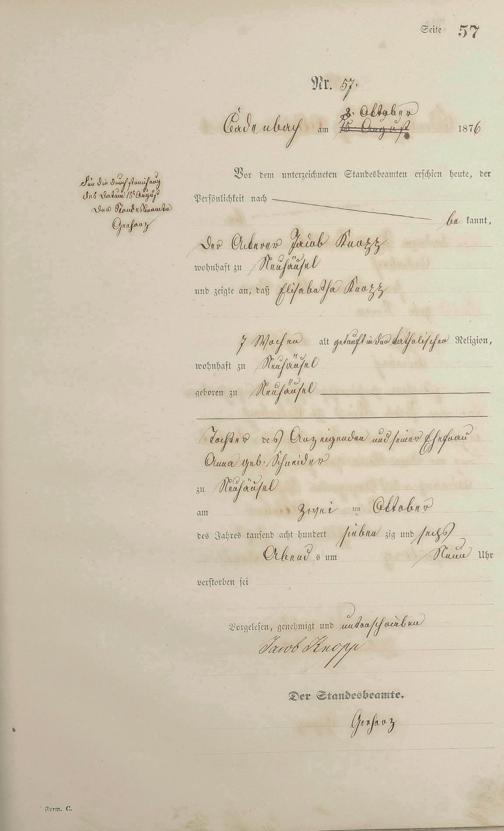 Seite 57
Nr. 57.
3. Oktober
Cadenbach am 15 August 1876
Für die Durchstreichung
des Datum 15 August
Der Standesbeamte
Gerharz
Vor dem unterzeichneten Standesbeamten erschien heute, der
Persönlichkeit nach
bekannt,
Der Ackerer Jacob Knopp
wohnhaft zu Neuhäusel
und zeigte an, daß Elisabetha Knopp
7 Wochen alt getauft in der katholischen Religion,
wohnhaft zu Neuhäusel
geboren zu Neuhäusel
Tochter des Anzeigenden und seiner Ehefrau
Anna geb. Schneider
zu Neuhäusel
am zwei ten Oktober
des Jahres tausend acht hundert sieben zig und sechs
Abend s um Neun Uhr
verstorben sei
Vorgelesen, genehmigt und unterschrieben
Jacob Knopp
Der Standesbeamte.
Gerharz
Form. C.